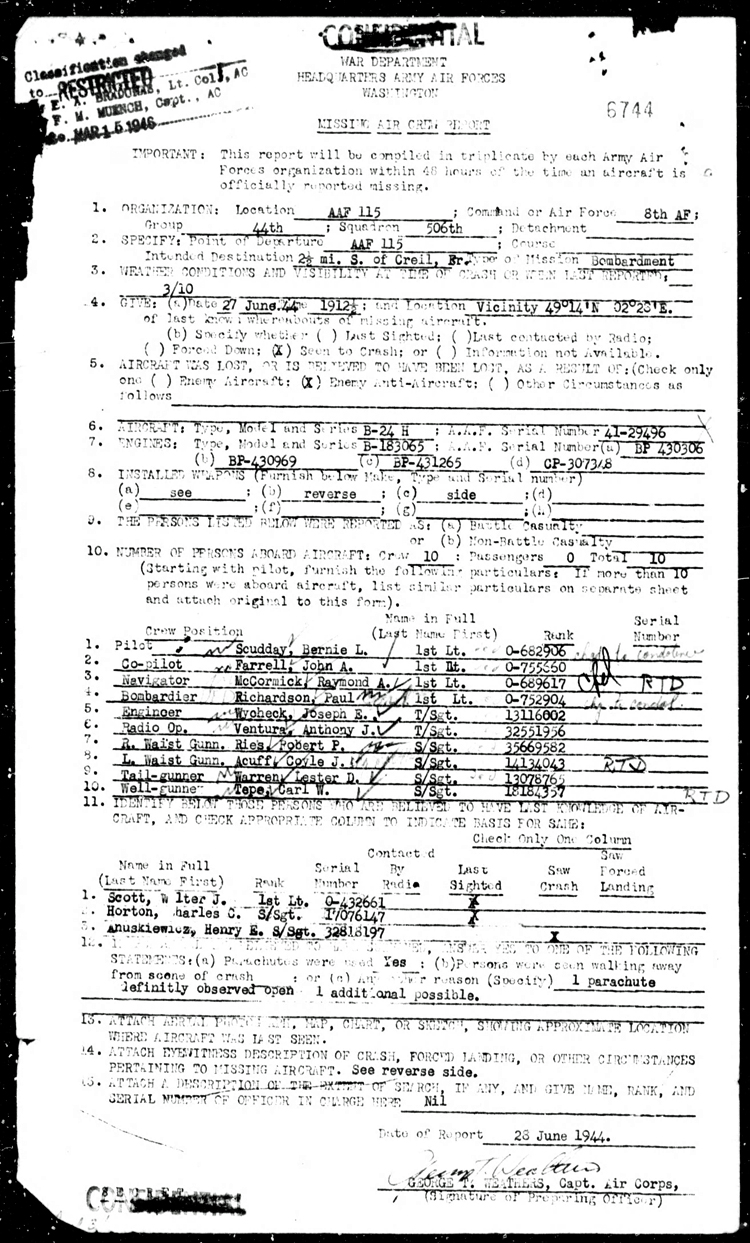 CONFIDENTIAL
Classification changed
to RESTRICTED
E. A. BRADUNAS, Lt. Col., AC
F. M. MUENCH, Capt., AC
MAR 15 1946
WAR DEPARTMENT
HEADQUARTERS ARMY AIR FORCES
WASHINGTON
6744
MISSING AIR CREW REPORT
IMPORTANT: This report will be compiled in triplicate by each Army Air
Forces organization within 48 hours of the time an aircraft is
officially reported missing.
1. ORGANIZATION: Location AAF 115 ; Command or Air Force 8th AF;
Group 44th ; Squadron 506th ; Detachment
2. SPECIFY: Point of Departure AAF 115 ; Course
Intended Destination 2½ mi. S. of Creil, Fr. Type of Mission Bombardment
3. WEATHER CONDITIONS AND VISIBILITY AT TIME OF CRASH OR WHEN LAST REPORTED:
3/10
4. GIVE: (a) Date 27 June 44 Time 1912½; and Location Vicinity 49°14'N 02°28'E.
of last known whereabouts of missing aircraft.
(b) Specify whether ( ) Last Sighted; ( ) Last contacted by Radio;
( ) Forced Down; (X) Seen to Crash; or ( ) Information not Available.
5. AIRCRAFT WAS LOST, OR IS BELIEVED TO HAVE BEEN LOST, AS A RESULT OF: (Check only
one ( ) Enemy Aircraft; (X) Enemy Anti-Aircraft; ( ) Other Circumstances as
follows
6. AIRCRAFT: Type, Model and Series B-24 H ; A.A.F. Serial Number 41-29496
7. ENGINES: Type, Model and Series B-183065 ; A.A.F. Serial Number (a) BP 430306
(b) BP-430969 (c) BP-431265 (d) CP-307348
8. INSTALLED WEAPONS (Furnish below Make, Type and Serial number)
(a) see ; (b) reverse ; (c) side ; (d)
(e) ; (f) ; (g) ; (h)
9. THE PERSONS LISTED BELOW WERE REPORTED AS: (a) Battle Casualty
or (b) Non-Battle Casualty
10. NUMBER OF PERSONS ABOARD AIRCRAFT: Crew 10 ; Passengers 0 Total 10
(Starting with pilot, furnish the following particulars: If more than 10
persons were aboard aircraft, list similar particulars on separate sheet
and attach original to this form).
Name in Full Serial
Crew Position (Last Name First) Rank Number
1. Pilot Scudday, Bernie L. 1st Lt. 0-682906
2. Co-pilot Farrell, John A. 1st Lt. 0-755660
3. Navigator McCormick, Raymond A. 1st Lt. 0-689617 RTD
4. Bombardier Richardson, Paul 1st Lt. 0-752904
5. Engineer Wycheck, Joseph E. T/Sgt. 13116002
6. Radio Op. Ventura, Anthony J. T/Sgt. 32551956
7. R. Waist Gunn. Ries, Robert P. S/Sgt. 35669582
8. L. Waist Gunn. Acuff, Coyle J. S/Sgt. 14134043 RTD
9. Tail-gunner Warren, Lester D. S/Sgt. 13078765
10. Well-gunner Tepe, Carl W. S/Sgt. 18184357 RTD
11. IDENTIFY BELOW THOSE PERSONS WHO ARE BELIEVED TO HAVE LAST KNOWLEDGE OF AIR-
CRAFT, AND CHECK APPROPRIATE COLUMN TO INDICATE BASIS FOR SAME:
Check Only One Column
Contacted Saw
Name in Full Serial By Last Saw Forced
(Last Name First) Rank Number Radio Sighted Crash Landing
1. Scott, W lter J. 1st Lt. 0-432661 X
2. Horton, harles C. S/Sgt. 17076147 X
3. Anuskiewicz, Henry E. S/Sgt. 32818197 X
12. ANSWER YES TO ONE OF THE FOLLOWING
STATEMENTS: (a) Parachutes were used Yes ; (b) Persons were seen walking away
from scene of crash ; or (c) Any other reason (Specify) 1 parachute
definitly observed open 1 additional possible.
13. ATTACH AERIAL PHOTOGRAPH, MAP, CHART, OR SKETCH, SHOWING APPROXIMATE LOCATION
WHERE AIRCRAFT WAS LAST SEEN.
14. ATTACH EYEWITNESS DESCRIPTION OF CRASH, FORCED LANDING, OR OTHER CIRCUMSTANCES
PERTAINING TO MISSING AIRCRAFT. See reverse side.
15. ATTACH A DESCRIPTION OF THE EXTENT OF SEARCH, IF ANY, AND GIVE NAME, RANK, AND
SERIAL NUMBER OF OFFICER IN CHARGE HERE Nil
Date of Report 28 June 1944.
George T. Weathers
GEORGE T. WEATHERS, Capt. Air Corps,
(Signature of Preparing Officer)